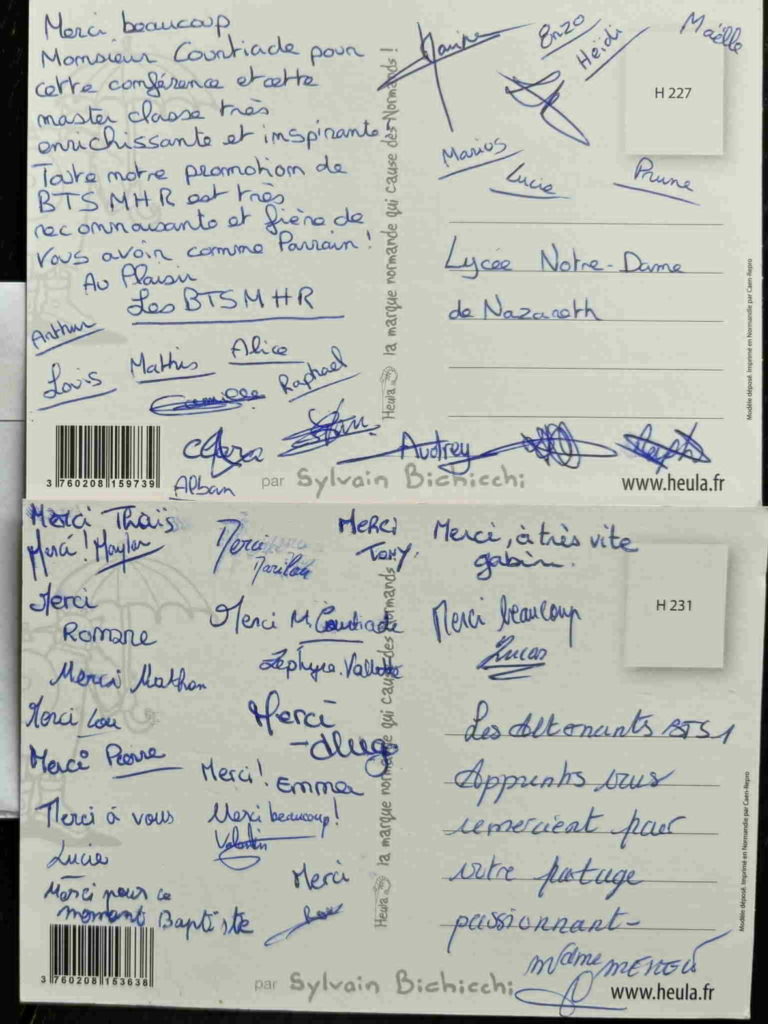 Merci beaucoup
Monsieur Courtiade pour
cette conférence et cette
master classe très
enrichissante et inspirante !
Toute notre promotion de
BTS MHR est très
reconnaissante et fière de
vous avoir comme Parrain !
Au Plaisir
Les BTS MHR
Arthur
Louis
Mathis
Alice
Camille
Raphael
Clara
Alban
Audrey
Marine
Enzo
Heïdi
Maëlle
Marius
Lucie
Prune
H 227
Lycée Notre-Dame
de Nazareth
Heula la marque normande qui cause dès Normands !
Modèle déposé. Imprimé en Normandie par Caen-Repro
3 760208 159739
par Sylvain Bichicchi
www.heula.fr
Merci Thaïs
Merci ! Maylan
Merci
Romane
Merci Mathan
Merci Lou
Merci Pierre
Merci à vous
Lucie
Merci pour ce
moment Baptiste
Merci
Marilou
Merci M. Courtiade
Zéphyre.
Merci
Merci ! Emma
Merci beaucoup !
Valentin
Merci
Merci
Tony.
Merci, à très vite
gabin.
Merci beaucoup
Lucas
H 231
Les Alternants BTS 1
Apprentis vous
remercient pour
votre partage
passionnant-
Mdme
Heula la marque normande qui cause dès Normands !
Modèle déposé. Imprimé en Normandie par Caen-Repro
3 760208 153638
par Sylvain Bichicchi
www.heula.fr